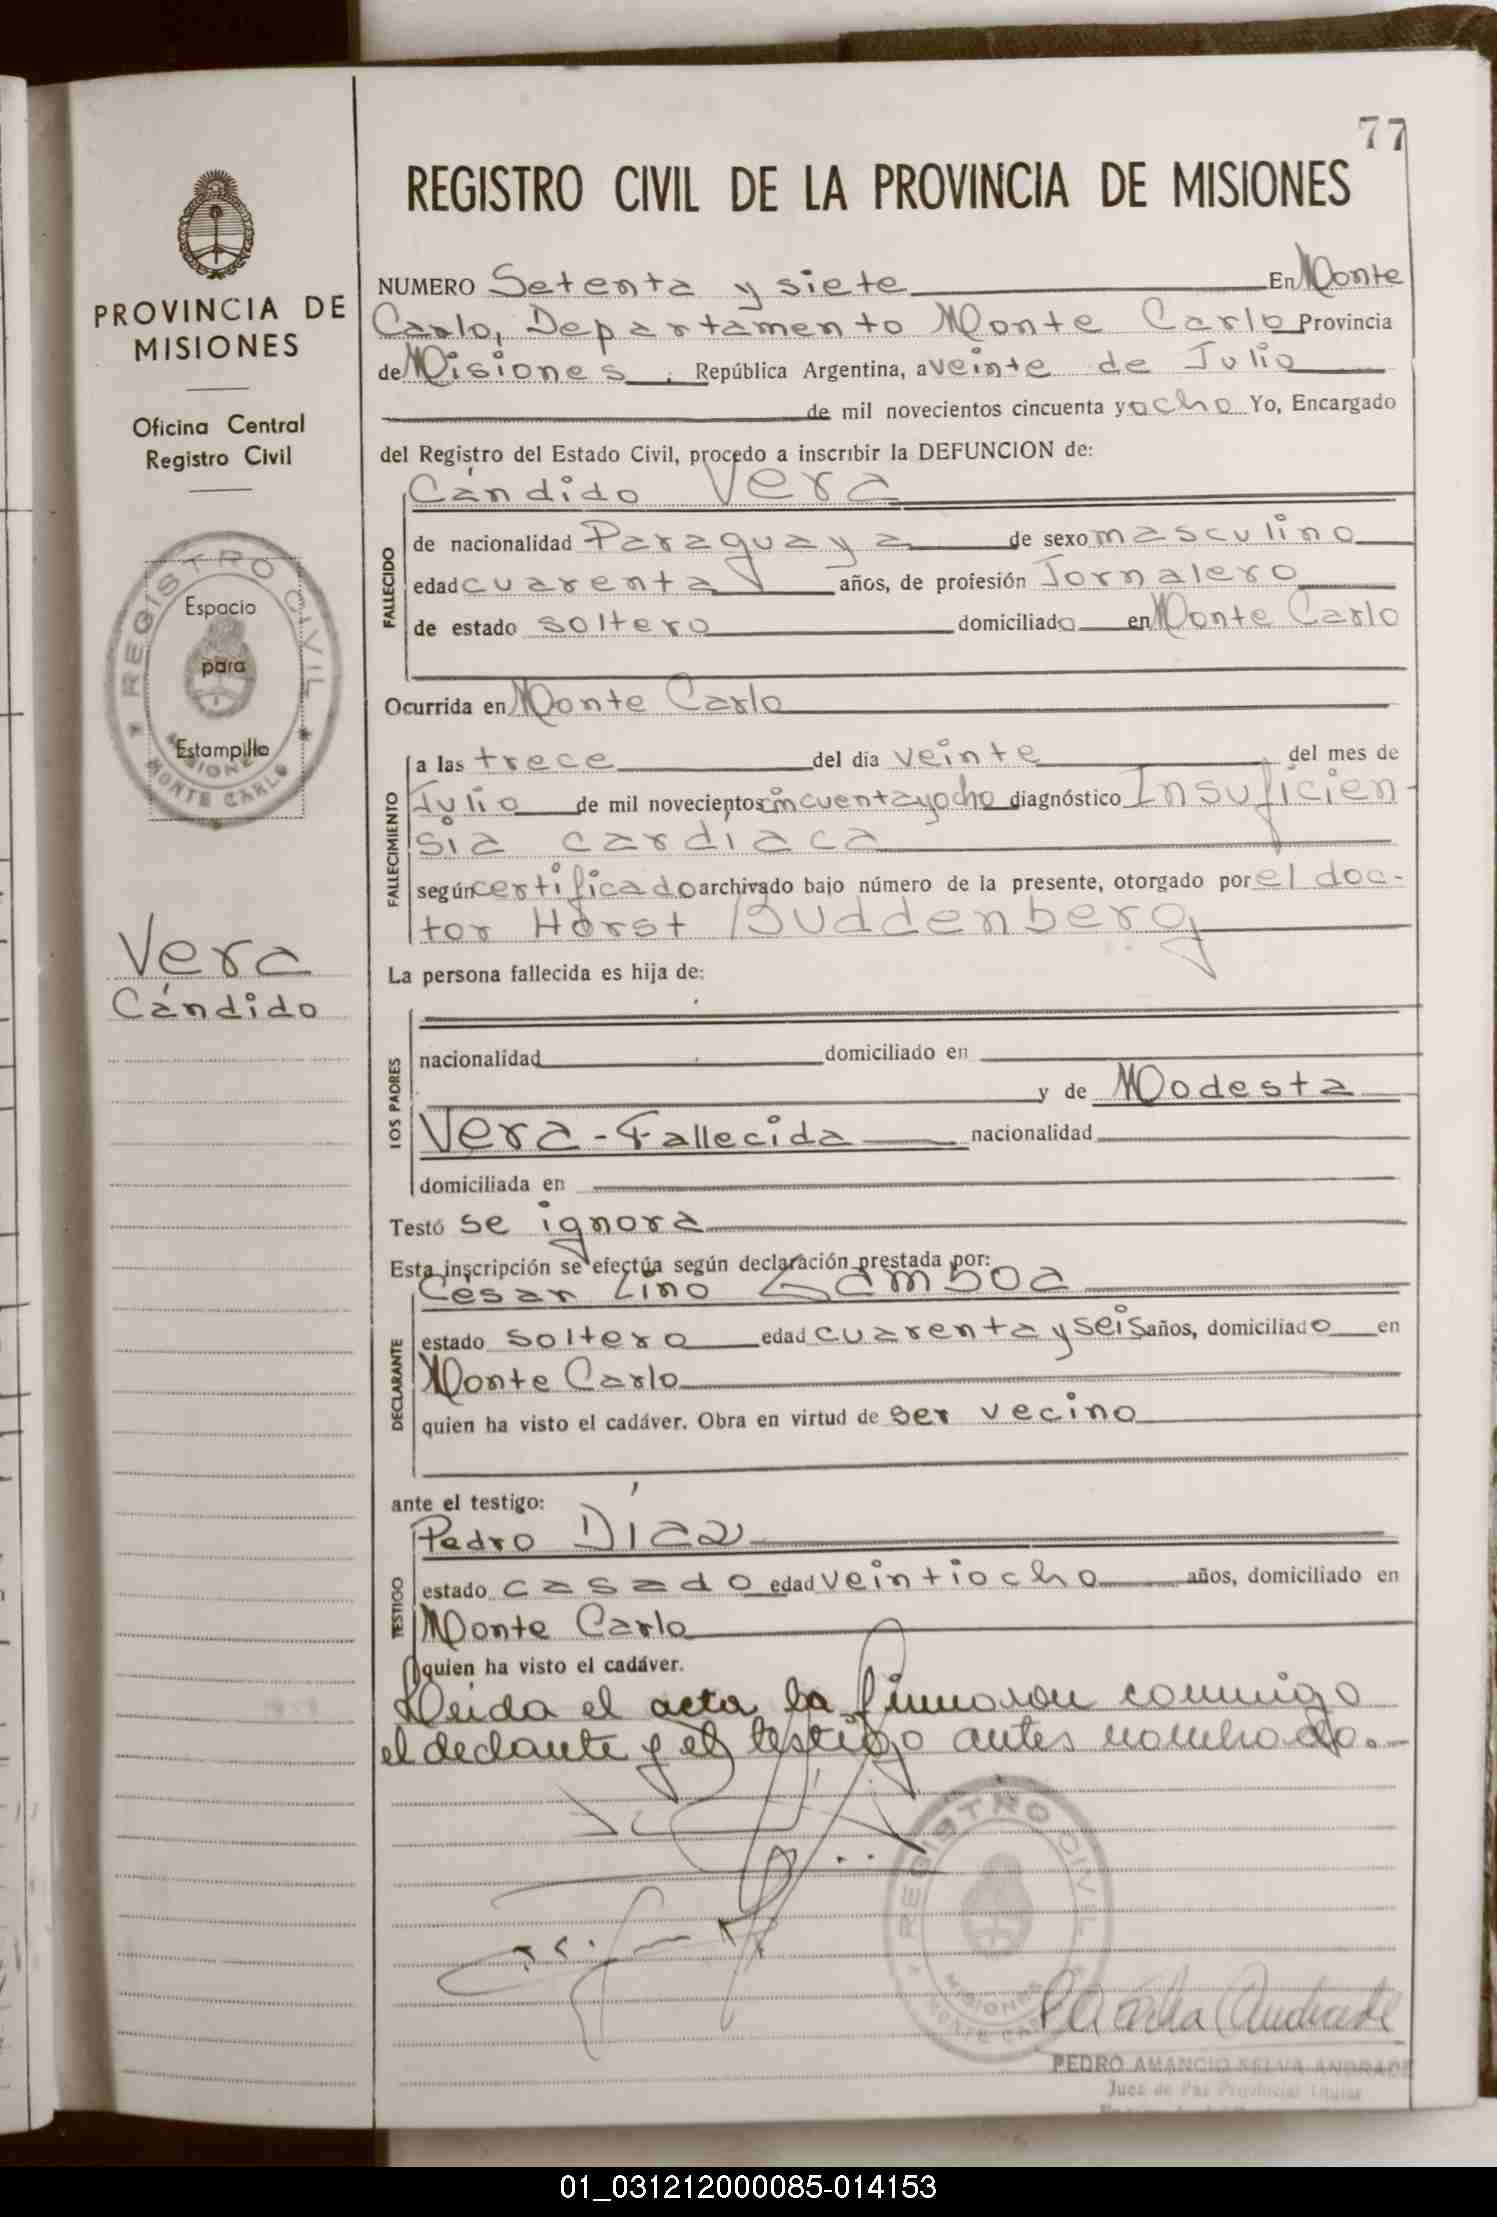 77
REGISTRO CIVIL DE LA PROVINCIA DE MISIONES
PROVINCIA DE
MISIONES
Oficina Central
Registro Civil
REGISTRO CIVIL
Espacio
para
Estampilla
MISIONES
MONTE CARLO
Vera
Cándido
NUMERO Setenta y siete En Monte
Carlo, Departamento Monte Carlo Provincia
de Misiones . República Argentina, a veinte de Julio
de mil novecientos cincuenta y ocho Yo, Encargado
del Registro del Estado Civil, procedo a inscribir la DEFUNCION de:
Cándido Vera
FALLECIDO
de nacionalidad Paraguaya de sexo masculino
edad cuarenta años, de profesión Jornalero
de estado soltero domiciliado en Monte Carlo
Ocurrida en Monte Carlo
FALLECIMIENTO
a las trece del día veinte del mes de
Julio de mil novecientos cincuentayocho diagnóstico Insuficien-
sia cardíaca
según certificado archivado bajo número de la presente, otorgado por el doc-
tor Horst Buddenberg
La persona fallecida es hija de:
LOS PADRES
nacionalidad domiciliado en
y de Modesta
Vera - Fallecida nacionalidad
domiciliada en
Testó se ignora
Esta inscripción se efectúa según declaración prestada por:
Cesar Lino Gamboa
DECLARANTE
estado soltero edad cuarenta y seis años, domiciliado en
Monte Carlo
quien ha visto el cadáver. Obra en virtud de ser vecino
ante el testigo:
Pedro Díaz
TESTIGO
estado casado edad veintiocho años, domiciliado en
Monte Carlo
quien ha visto el cadáver.
Leida el acta la firmaron conmigo
el declante y el testigo antes nombrado.-
REGISTRO CIVIL
MISIONES
MONTE CARLO
PEDRO AMANCIO SELVA ANDRADE
Juez de Paz Provincial Titular
01_031212000085-014153